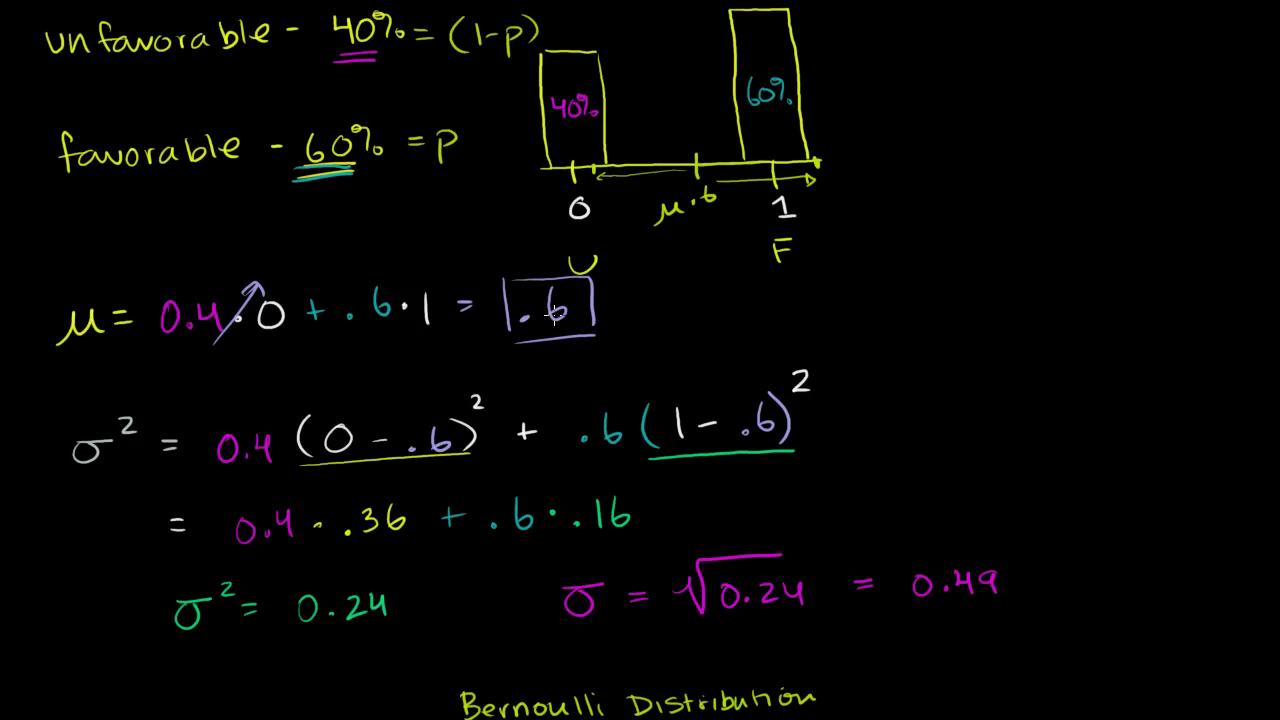 unfavorable - 40% = (1-p)
favorable - 60% = p
40%
60%
μ .6
0
1
U
F
μ = 0.4 · 0 + .6 · 1 = .6
σ² = 0.4 (0 - .6)² + .6 (1 - .6)²
= 0.4 · .36 + .6 · .16
σ² = 0.24
σ = √0.24 = 0.49
Bernoulli Distribution